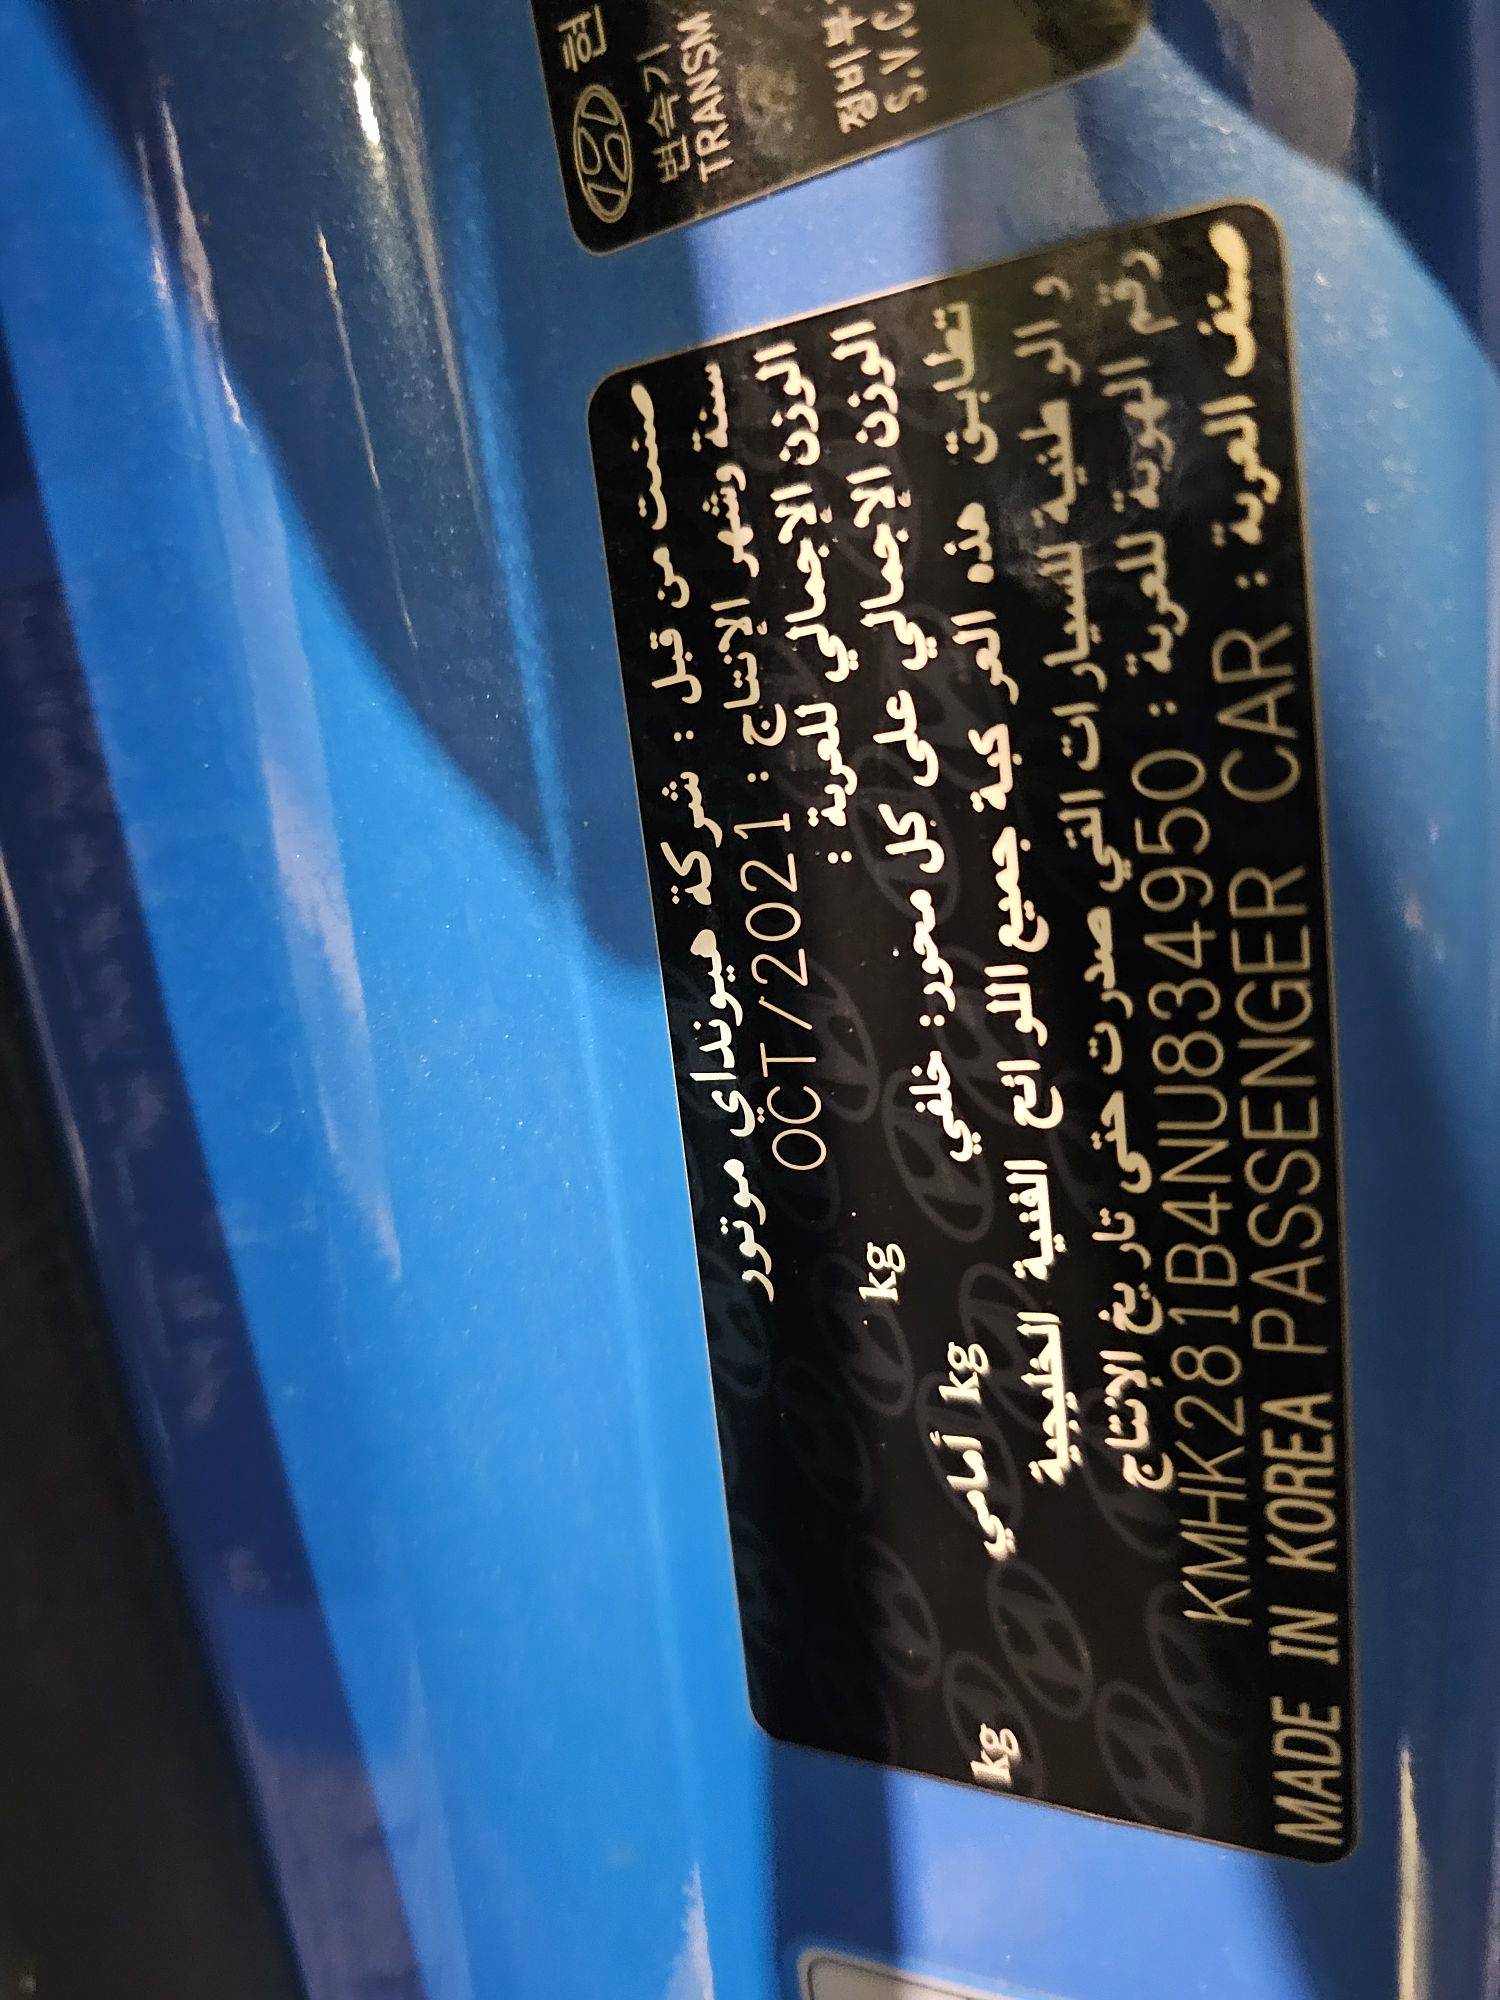 صنعت من قبل : شركة هيونداي موتور
سنة وشهر الإنتاج : OCT/2021
الوزن الإجمالي للعربة : kg
الوزن الإجمالي على كل محور: خلفي kg أمامي kg
تطابق هذه العر كبة جميع اللوائح الفنية الخليجية
و الو طنية للسيارات التي صدرت حتى تاريخ الإنتاج
رقم الهوية للعربة : KMHK281B4NU834950
صنف العربة : MADE IN KOREA PASSENGER CAR
현
변속기
TRANSM
정비부
S.V.C